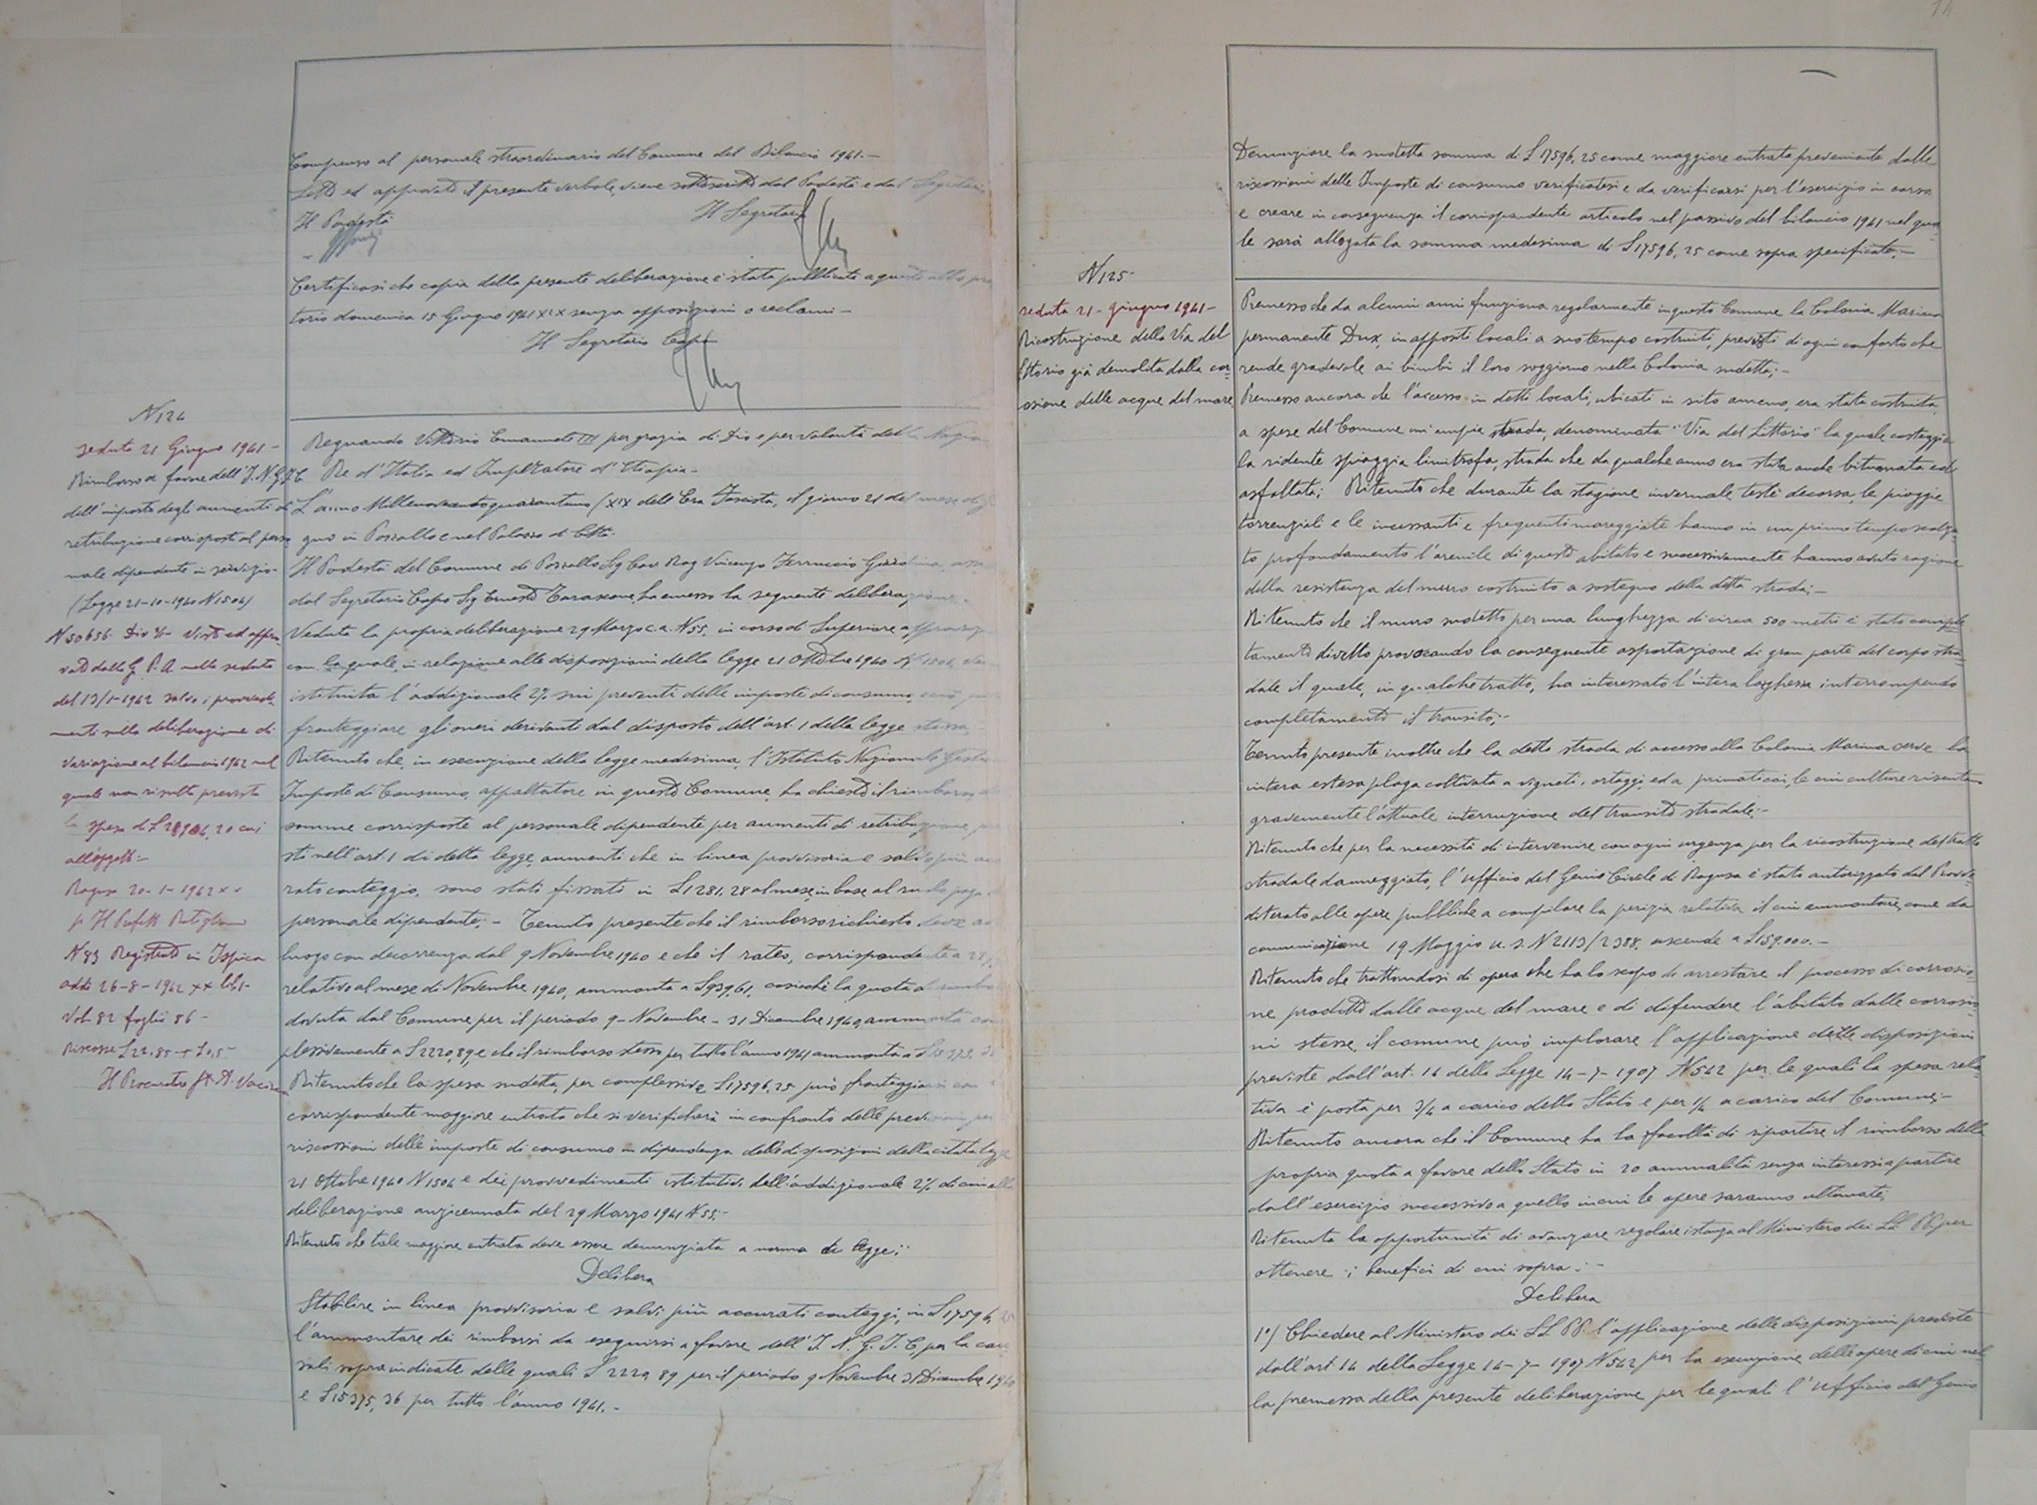 Compenso al personale straordinario del Comune del Bilancio 1941.-
Letto ed approvato il presente verbale, viene sottoscritto dal Podestà e dal Segretario
Il Podestà Il Segretario
Certificasi che copia della presente deliberazione è stata pubblicata a questo albo pre
torio domenica 15 Giugno 1941 XIX senza opposizioni o reclami-
Il Segretario Capo
N 124
seduta 21 Giugno 1941-
Rimborso a favore dell'I.N.G.I.C.
dell'importo degli aumenti di
retribuzione corrisposti al perso
nale dipendente in servizio-
(Legge 21-10-1940 N 1504)
N 50656 Div Visto ed appro
vato dalla G.P.A. nella seduta
del 13/1-1942 salvo i provvedi
menti sulla deliberazione di
variazione al bilancio 1942 nel
quale non risulta prevista
la spesa di L
all'oggetto:-
Ragusa 20-1-1942 XX
p Il Prefetto
N 83 Registrato in Ispica
addì 26-8-1942 XX
Vol 82 foglio 86-
Riscosse L 22,85
Il Procuratore
Regnando Vittorio Emanuele III per grazia di Dio e per volontà della Nazione
Re d'Italia ed Imperatore d'Etiopia-
L'anno Millenovecentoquarantuno (XIX dell'Era Fascista, il giorno 21 del mese di
gno in Pozzallo e nel Palazzo di Città.
Il Podestà del Comune di Pozzallo Sig Cav Rag Vincenzo Ferruccio Giardina,
dal Segretario Capo Sig Ernesto Tarascone, ha emesso la seguente deliberazione.
Veduta la propria deliberazione 29 Marzo c.a. N 55, in corso di Superiore approvazione
con la quale, in relazione alle disposizioni della legge 21 Ottobre 1940 N 1504,
istituita l'addizionale 2% sui proventi delle imposte di consumo,
fronteggiare gli oneri derivanti dal disposto dell'art. 1 della legge stessa;
Ritenuto che, in esecuzione della legge medesima, l'Istituto Nazionale Gestione
Imposte di Consumo, appaltatore in questo Comune, ha chiesto il rimborso
somme corrisposte al personale dipendente per aumenti di retribuzione
sti nell'art. 1 di detta legge, aumenti che in linea provvisoria e salvo più
rato conteggio, sono stati fissati in L 1281,28 al mese, in base al ruolo paga
personale dipendente;- Tenuto presente che il rimborso richiesto deve
luogo con decorrenza dal 9 Novembre 1940 e che il rateo, corrispondente a
relativo al mese di Novembre 1940, ammonta a L 939,61, cosicchè la quota di
dovuta dal Comune per il periodo 9- Novembre - 31 Dicembre 1940 ammonta com
plessivamente a L 2220,89, e che il rimborso stesso per tutto l'anno 1941 ammonta a
Ritenuto che la spesa sudetta, per complessive L 17596,25 può fronteggiarsi con
corrispondente maggiore entrata che si verificherà in confronto delle previsioni per
riscossioni delle imposte di consumo in dipendenza delle disposizioni della citata legge
21 Ottobre 1940 N 1504 e dei provvedimenti istitutivi dell'addizionale 2% di cui alla
deliberazione anzicennata del 29 Marzo 1941 N 55;-
Ritenuto che tale maggiore entrata deve essere denunziata a norma di legge;
Delibera
Stabilire in linea provvisoria e salvi più accurati conteggi, in L 17596,25
l'ammontare dei rimborsi da eseguirsi a favore dell'I.N.G.I.C. per la cau
sali sopra indicate delle quali L 2220,89 per il periodo 9 Novembre 31 Dicembre 1940
e L 15375,36 per tutto l'anno 1941.-
Denunziare la sudetta somma di L 17596,25 come maggiore entrata proveniente dalle
riscossioni delle Imposte di consumo verificatesi e da verificarsi per l'esercizio in corso
e creare in conseguenza il corrispondente articolo nel passivo del bilancio 1941 nel qua
le sarà allogata la somma medesima di L 17596,25 come sopra specificato.-
N 125-
seduta 21- giugno 1941-
Ricostruzione della Via del
Littorio già demolita dalla cor-
rosione delle acque del mare
Premesso che da alcuni anni funziona regolarmente in questo Comune la Colonia Marina
permanente Dux, in appositi locali a suo tempo costruiti, provvisti di ogni conforto che
rende gradevole ai bimbi il loro soggiorno nella Colonia sudetta;-
Premesso ancora che l'accesso in detti locali, ubicati in sito ameno, era stata costruita,
a spese del Comune un'ampia strada, denominata "Via del Littorio" la quale costeggia
la ridente spiaggia limitrofa, strada che da qualche anno era stata anche bitumata ed
asfaltata; Ritenuto che durante la stagione invernale testè decorsa, le pioggie
torrenziali e le incessanti e frequenti mareggiate hanno in un primo tempo scalza
to profondamente l'arenile di questo abitato e successivamente hanno avuto ragione
della resistenza del muro costruito a sostegno della detta strada;-
Ritenuto che il muro sudetto per una lunghezza di circa 500 metri è stato comple
tamente divelto provocando la conseguente asportazione di gran parte del corpo stra-
dale il quale, in qualche tratto, ha interessato l'intera larghezza interrompendo
completamente il transito;-
Tenuto presente inoltre che la detta strada di accesso alla Colonia Marina serve la
intera estesa plaga coltivata a vigneti, ortaggi, ed a primaticci, le cui culture risentono
gravemente l'attuale interruzione del transito stradale;-
Ritenuto che per la necessità di intervenire con ogni urgenza per la ricostruzione del tratto
stradale danneggiato, l'ufficio del Genio Civile di Ragusa è stato autorizzato dal Provve-
ditorato alle opere pubbliche a compilare la perizia relativa il cui ammontare, come da
comunicazione 19 Maggio u.s. N 2113/2388 ascende a L 159.000.-
Ritenuto che trattandosi di opera che ha lo scopo di arrestare il processo di corrosio-
ne prodotto dalle acque del mare e di difendere l'abitato dalle corrosio
ni stesse, il comune può implorare l'applicazione delle disposizioni
previste dall'art. 14 della Legge 14-7-1907 N 542 per le quali la spesa rela-
tiva è posta per 3/4 a carico dello Stato e per 1/4 a carico del Comune;-
Ritenuto ancora che il Comune ha la facoltà di ripartire il rimborso della
propria quota a favore dello Stato in 20 annualità senza interessi a partire
dall'esercizio successivo a quello in cui le opere saranno ultimate;
Ritenuta la opportunità di avanzare regolare istanza al Ministero dei LL PP per
ottenere i benefici di cui sopra;-
Delibera
1°) Chiedere al Ministero dei LL PP. l'applicazione delle disposizioni previste
dall'art. 14 della Legge 14-7-1907 N 542 per la esecuzione delle opere di cui nel
la premessa della presente deliberazione, per le quali l'ufficio del Genio